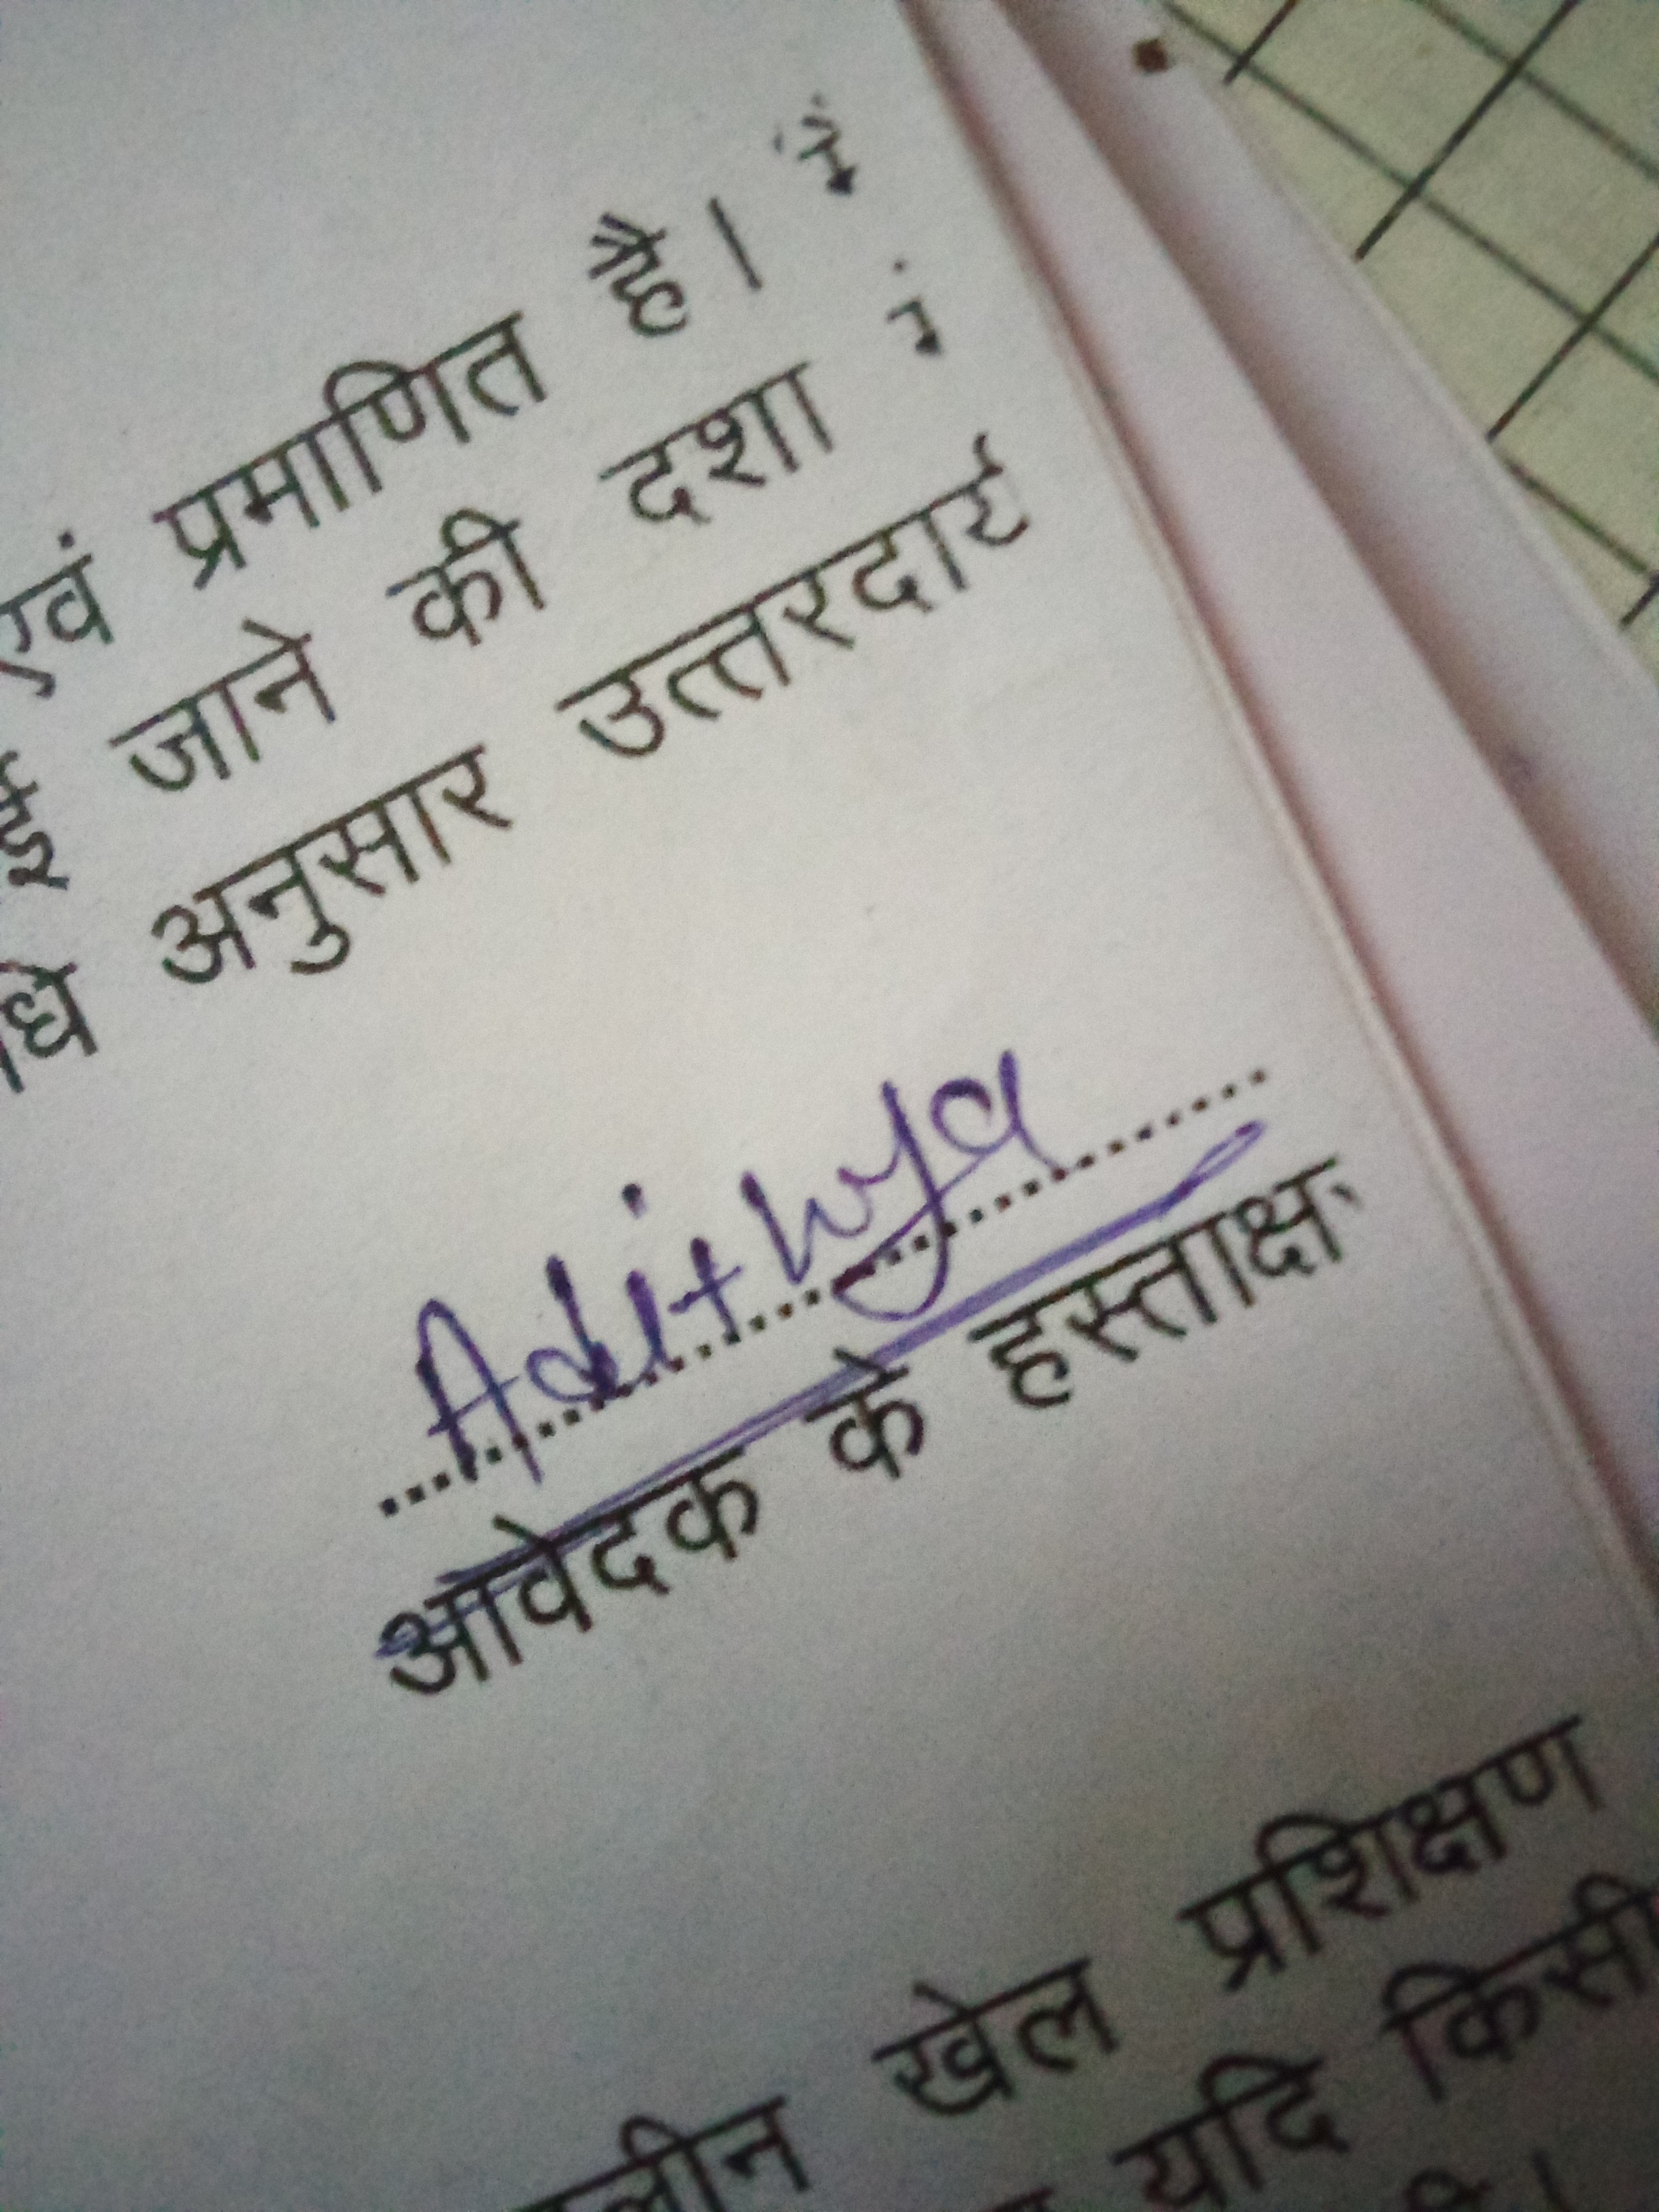 एवं प्रमाणित है। मैं
जाने की दशा में
अनुसार
Adithya
आवेदक के हस्ताक्षर
खेल प्रशिक्षण
यदि किसी